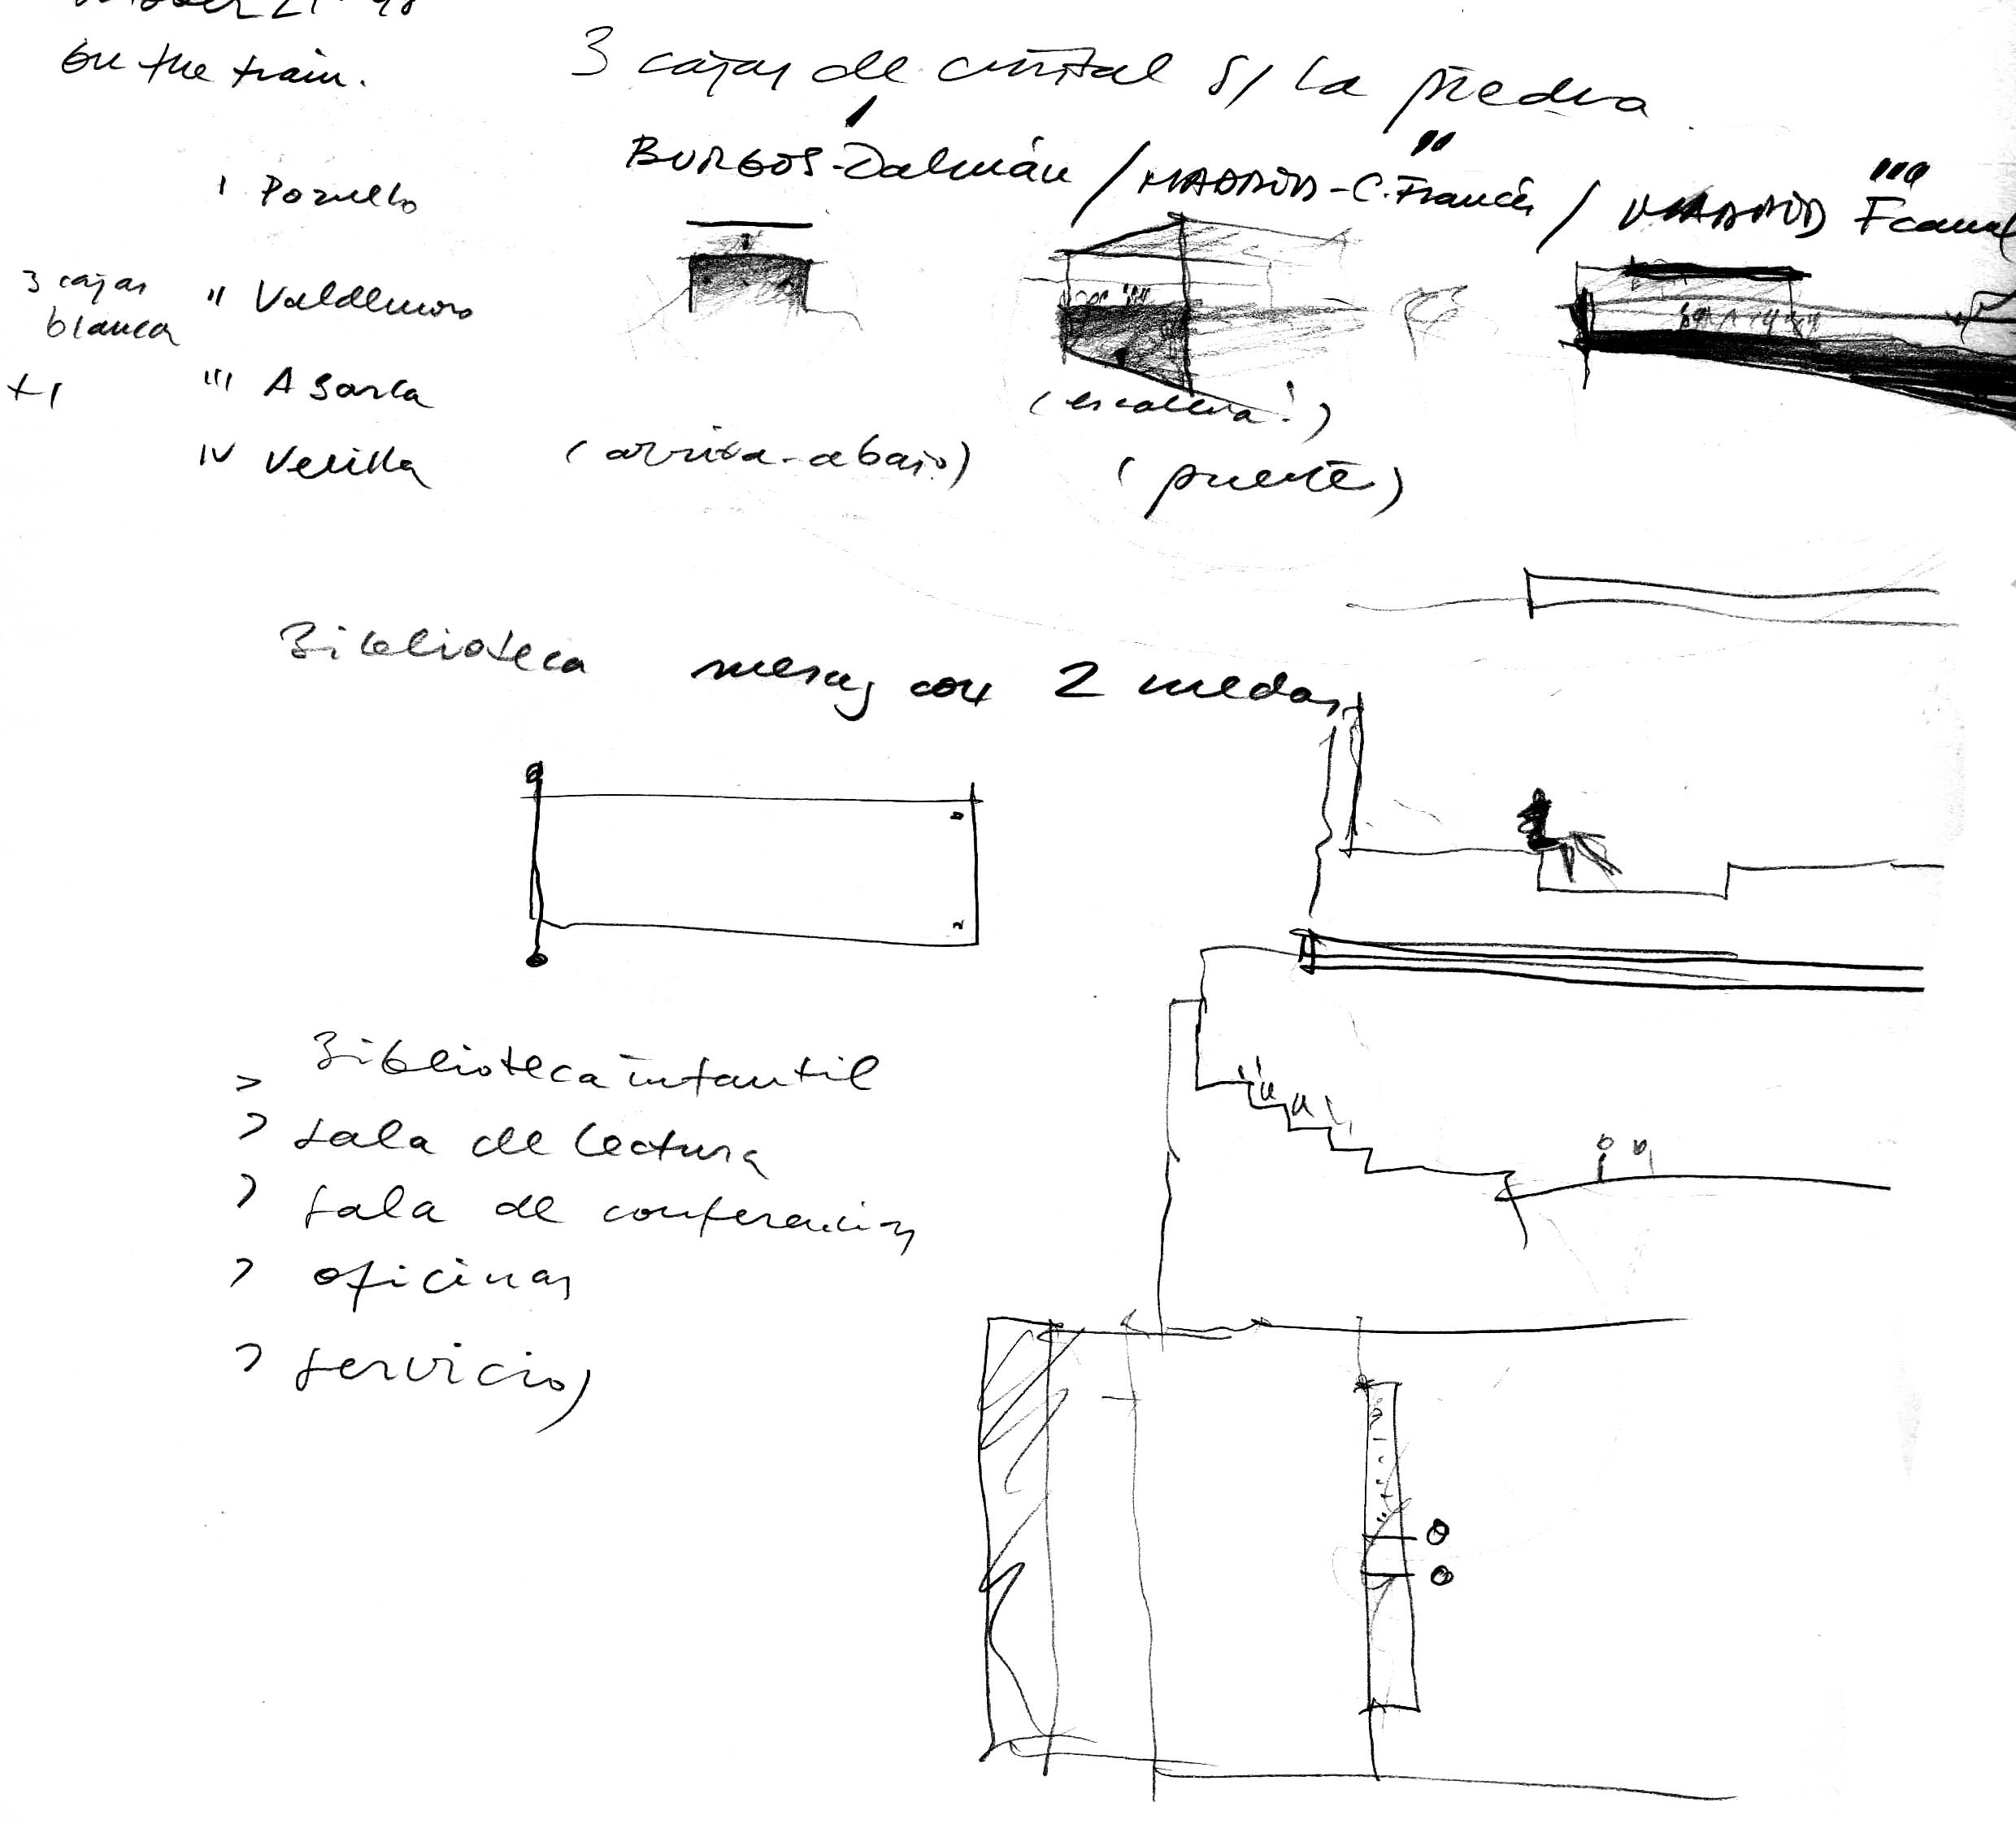 on the train.
3 cajas de cristal s/ la piedra
BURGOS-Dalmán / MADRID-C. Francés / MADRID
I Pozuelo
3 cajas
blanca
II Valdemoro
+1
III A Garea
IV Velilla
(arriba-abajo)
(escalera!)
(puente)
Biblioteca
mesas con 2 ruedas
> Biblioteca infantil
> sala de lectura
> sala de conferencias
> oficinas
> servicios